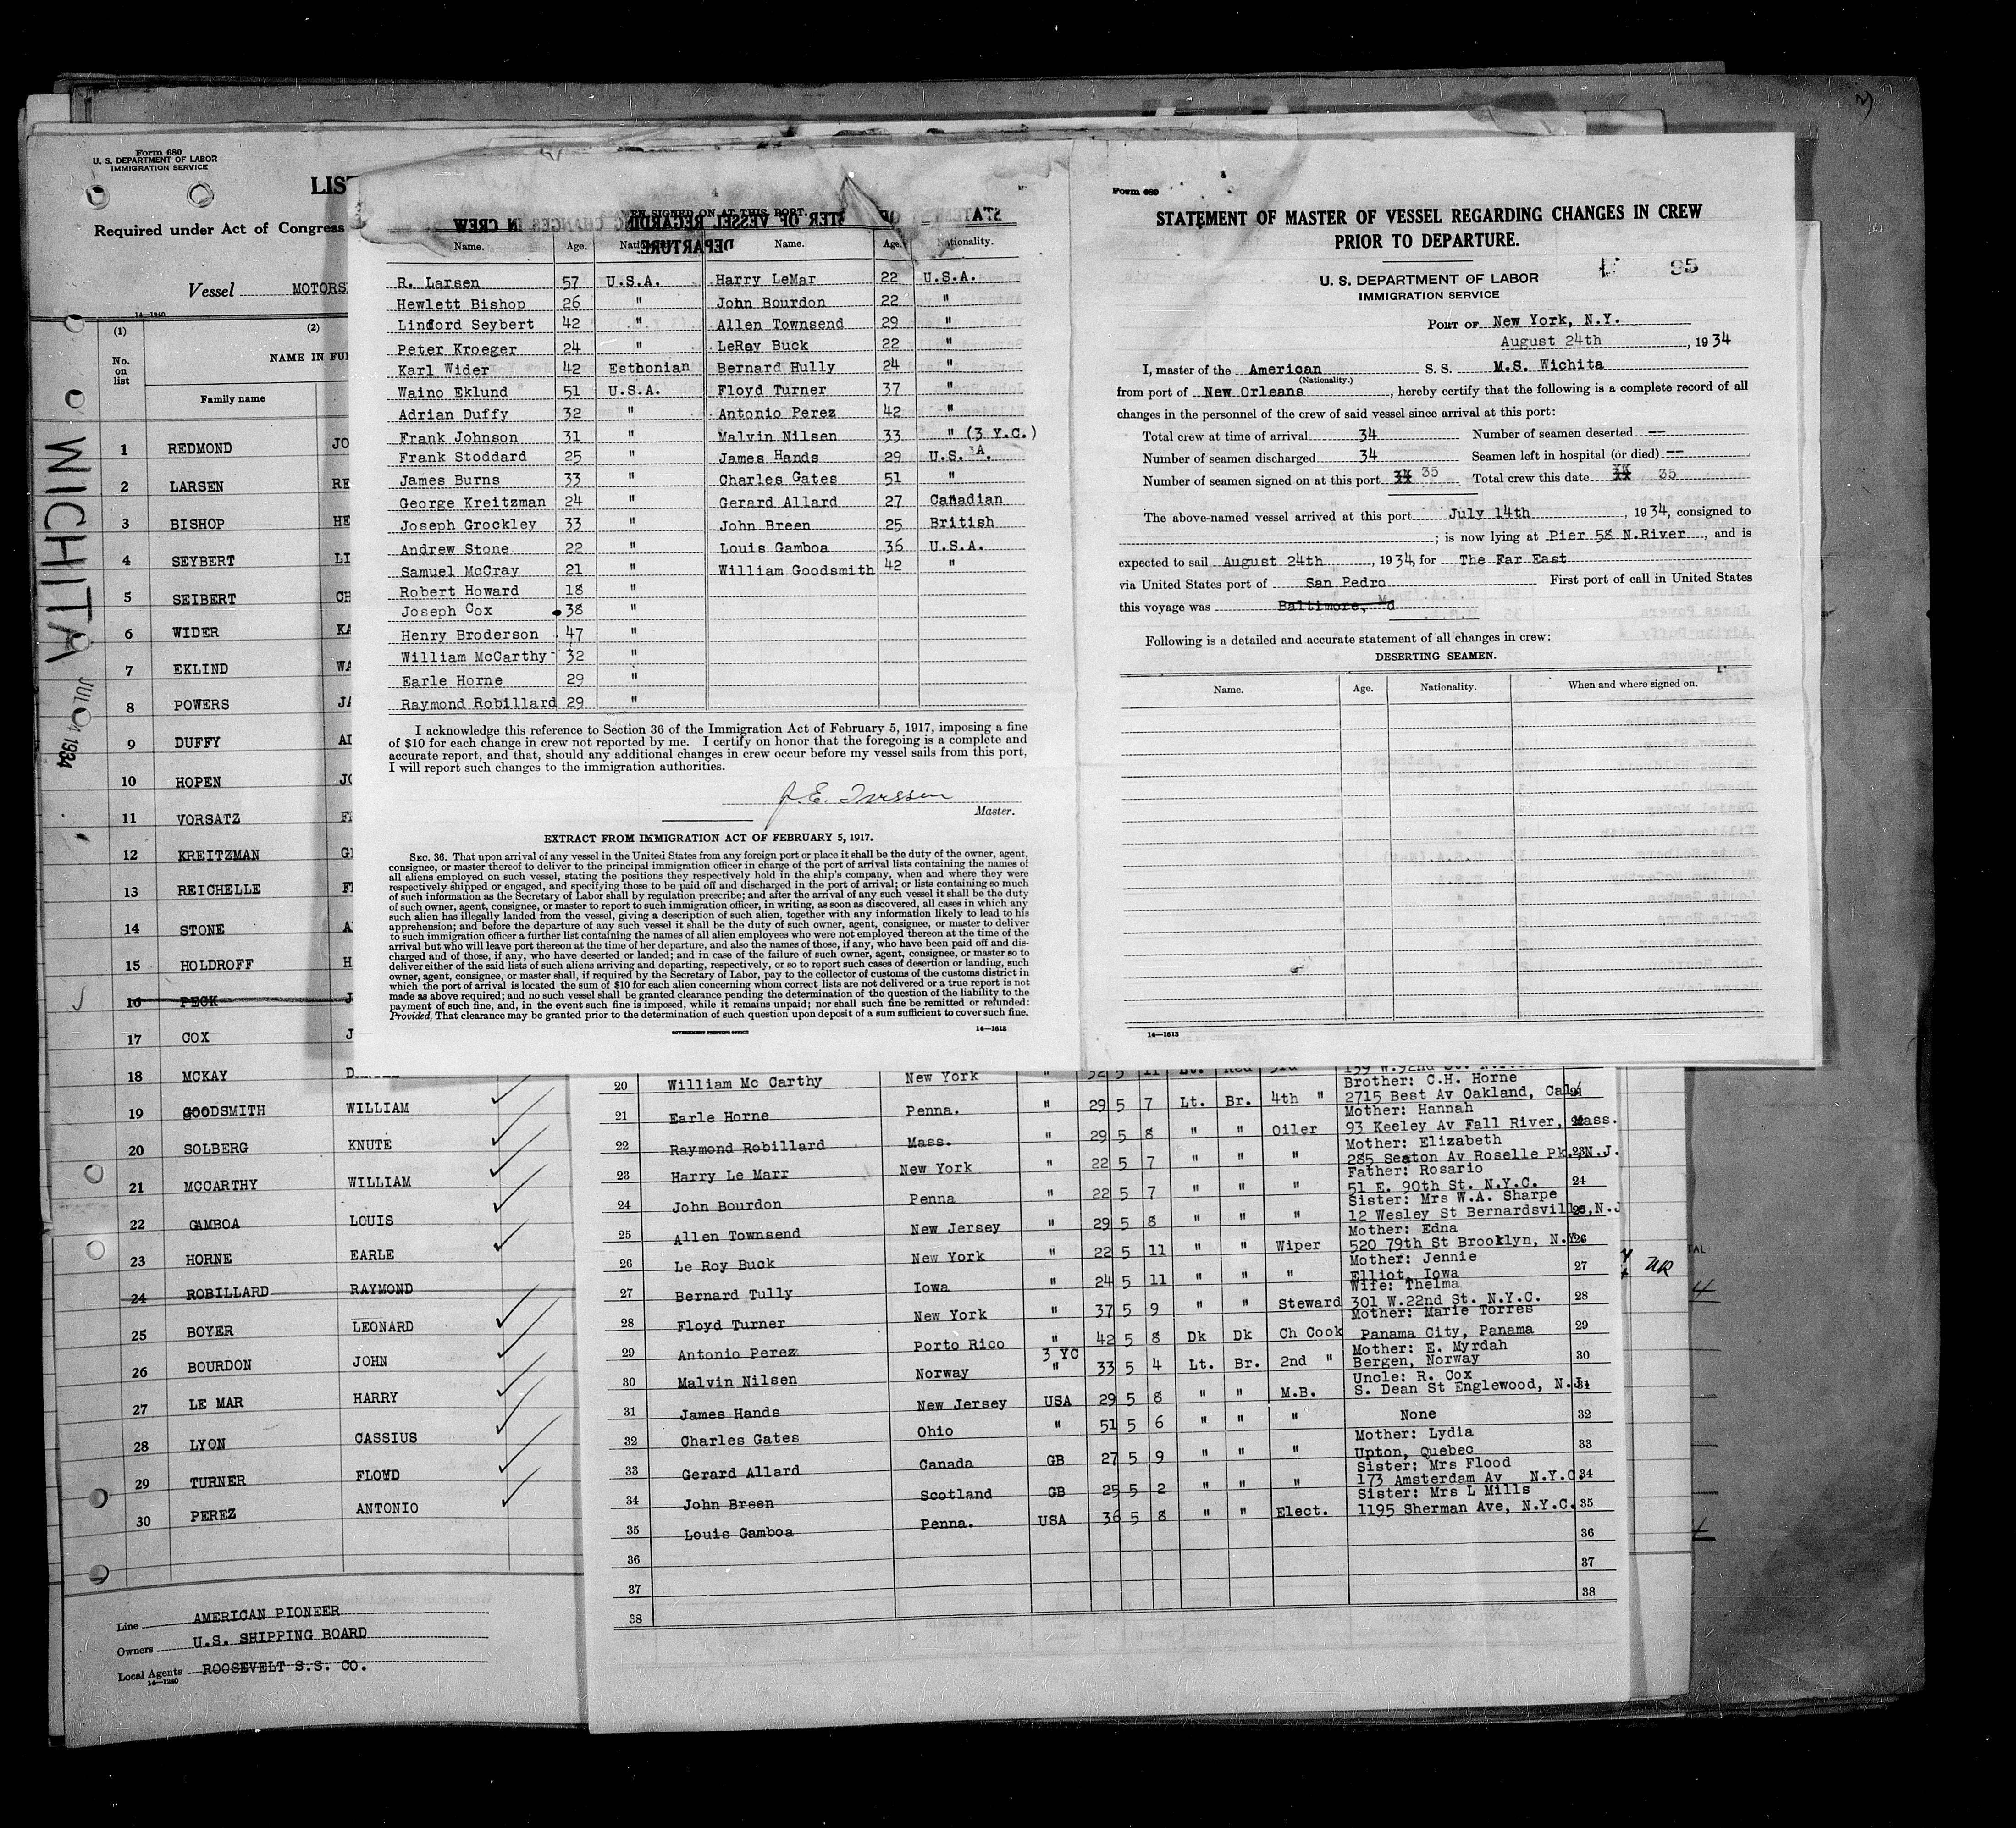 Form 680
U. S. DEPARTMENT OF LABOR
IMMIGRATION SERVICE
Required under Act of Congress
Vessel MOTORS
14—1240
(1) (2)
No. on list
NAME IN
Family name
1 REDMOND JO
2 LARSEN RE
3 BISHOP HE
4 SEYBERT LI
5 SEIBERT CH
6 WIDER KA
7 EKLIND WA
8 POWERS JA
9 DUFFY
10 HOPEN JO
11 VORSATZ
12 KREITZMAN
13 REICHELLE
14 STONE
15 HOLDROFF
16 PECK
17 COX
18 MCKAY D
19 GOODSMITH WILLIAM
20 SOLBERG KNUTE
21 MCCARTHY WILLIAM
22 GAMBOA LOUIS
23 HORNE EARLE
24 ROBILLARD RAYMOND
25 BOYER LEONARD
26 BOURDON JOHN
27 LE MAR HARRY
28 LYON CASSIUS
29 TURNER FLOYD
30 PEREZ ANTONIO
Line AMERICAN PIONEER
Owners U.S. SHIPPING BOARD
Local Agents ROOSEVELT S.S. CO.
14—1240
WICHITA
JUL 1934
EN SIGNED ON AT THIS PORT.
Name. Age. Name. Age. Nationality.
R. Larsen 57 U.S.A. Harry LeMar 22 U.S.A.
Hewlett Bishop 26 " John Bourdon 22 "
Lindford Seybert 42 " Allen Townsend 29 "
Peter Kroeger 24 " LeRoy Buck 22 "
Karl Wider 42 Esthonian Bernard Hully 24 "
Waino Eklund 51 U.S.A. Floyd Turner 37 "
Adrian Duffy 32 " Antonio Perez 42 "
Frank Johnson 31 " Malvin Nilsen 33 " (3 Y.C.)
Frank Stoddard 25 " James Hands 29 U.S.A.
James Burns 33 " Charles Gates 51 "
George Kreitzman 24 " Gerard Allard 27 Canadian
Joseph Grockley 33 " John Breen 25 British
Andrew Stone 22 " Louis Gamboa 36 U.S.A.
Samuel McCray 21 " William Goodsmith 42 "
Robert Howard 18 "
Joseph Cox 38 "
Henry Broderson 47 "
William McCarthy 32 "
Earle Horne 29 "
Raymond Robillard 29 "
I acknowledge this reference to Section 36 of the Immigration Act of February 5, 1917, imposing a fine
of $10 for each change in crew not reported by me. I certify on honor that the foregoing is a complete and
accurate report, and that, should any additional changes in crew occur before my vessel sails from this port,
I will report such changes to the immigration authorities.
J.E. Iverssen
Master.
EXTRACT FROM IMMIGRATION ACT OF FEBRUARY 5, 1917.
SEC. 36. That upon arrival of any vessel in the United States from any foreign port or place it shall be the duty of the owner, agent,
consignee, or master thereof to deliver to the principal immigration officer in charge of the port of arrival lists containing the names of
all aliens employed on such vessel, stating the positions they respectively hold in the ship's company, when and where they were
respectively shipped or engaged, and specifying those to be paid off and discharged in the port of arrival; or lists containing so much
of such information as the Secretary of Labor shall by regulation prescribe; and after the arrival of any such vessel it shall be the duty
of such owner, agent, consignee, or master to report to such immigration officer, in writing, as soon as discovered, all cases in which any
such alien has illegally landed from the vessel, giving a description of such alien, together with any information likely to lead to his
apprehension; and before the departure of any such vessel it shall be the duty of such owner, agent, consignee, or master to deliver
to such immigration officer a further list containing the names of all alien employees who were not employed thereon at the time of the
arrival but who will leave port thereon at the time of her departure, and also the names of those, if any, who have been paid off and dis-
charged and of those, if any, who have deserted or landed; and in case of the failure of such owner, agent, consignee, or master so to
deliver either of the said lists of such aliens arriving and departing, respectively, or so to report such cases of desertion or landing, such
owner, agent, consignee, or master shall, if required by the Secretary of Labor, pay to the collector of customs of the customs district in
which the port of arrival is located the sum of $10 for each alien concerning whom correct lists are not delivered or a true report is not
made as above required; and no such vessel shall be granted clearance pending the determination of the question of the liability to the
payment of such fine, and, in the event such fine is imposed, while it remains unpaid; nor shall such fine be remitted or refunded:
Provided, That clearance may be granted prior to the determination of such question upon deposit of a sum sufficient to cover such fine.
GOVERNMENT PRINTING OFFICE 14—1613
Form 689
STATEMENT OF MASTER OF VESSEL REGARDING CHANGES IN CREW
PRIOR TO DEPARTURE.
U. S. DEPARTMENT OF LABOR
IMMIGRATION SERVICE
95
PORT OF New York, N.Y.
August 24th, 1934
I, master of the American S. S. M.S. Wichita
(Nationality.)
from port of New Orleans, hereby certify that the following is a complete record of all
changes in the personnel of the crew of said vessel since arrival at this port:
Total crew at time of arrival 34 Number of seamen deserted --
Number of seamen discharged 34 Seamen left in hospital (or died) --
Number of seamen signed on at this port 35 Total crew this date 35
The above-named vessel arrived at this port July 14th, 1934, consigned to
; is now lying at Pier 58 N.River, and is
expected to sail August 24th, 1934, for The Far East
via United States port of San Pedro First port of call in United States
this voyage was Baltimore, Md
Following is a detailed and accurate statement of all changes in crew:
DESERTING SEAMEN.
Name. Age. Nationality. When and where signed on.
14—1613
20 William Mc Carthy New York " 32 5 11 Lt. Red 3rd 159 W.92nd St.
Brother: C.H. Horne
21 Earle Horne Penna. " 29 5 7 Lt. Br. 4th " 2715 Best Av Oakland, Cal
Mother: Hannah
22 Raymond Robillard Mass. " 29 5 8 " " Oiler 93 Keeley Av Fall River, Mass.
Mother: Elizabeth
23 Harry Le Marr New York " 22 5 7 " " " 285 Seaton Av Roselle Pk., N.J. 23
Father: Rosario
24 John Bourdon Penna " 22 5 7 " " " 51 E. 90th St. N.Y.C. 24
Sister: Mrs W.A. Sharpe
25 Allen Townsend New Jersey " 29 5 8 " " " 12 Wesley St Bernardsville, N.J
Mother: Edna
26 Le Roy Buck New York " 22 5 11 " " Wiper 520 79th St Brooklyn, N.Y. 26
Mother: Jennie
27 Bernard Tully Iowa " 24 5 11 " " " Elliot, Iowa 27
Wife: Thelma
28 Floyd Turner New York " 37 5 9 " " Steward 301 W.22nd St. N.Y.C. 28
Mother: Marie Torres
29 Antonio Perez Porto Rico " 42 5 8 Dk Dk Ch Cook Panama City, Panama 29
Mother: E. Myrdah
30 Malvin Nilsen Norway 3 YC " 33 5 4 Lt. Br. 2nd " Bergen, Norway 30
Uncle: R. Cox
31 James Hands New Jersey USA 29 5 8 " " M.B. S. Dean St Englewood, N.J. 31
32 Charles Gates Ohio " 51 5 6 " " " None 32
Mother: Lydia
33 Gerard Allard Canada GB 27 5 9 " " " Upton, Quebec 33
Sister: Mrs Flood
34 John Breen Scotland GB 25 5 2 " " " 173 Amsterdam Av N.Y.C 34
Sister: Mrs L Mills
35 Louis Gamboa Penna. USA 36 5 8 " " Elect. 1195 Sherman Ave, N.Y.C. 35
36 36
37 37
38 38